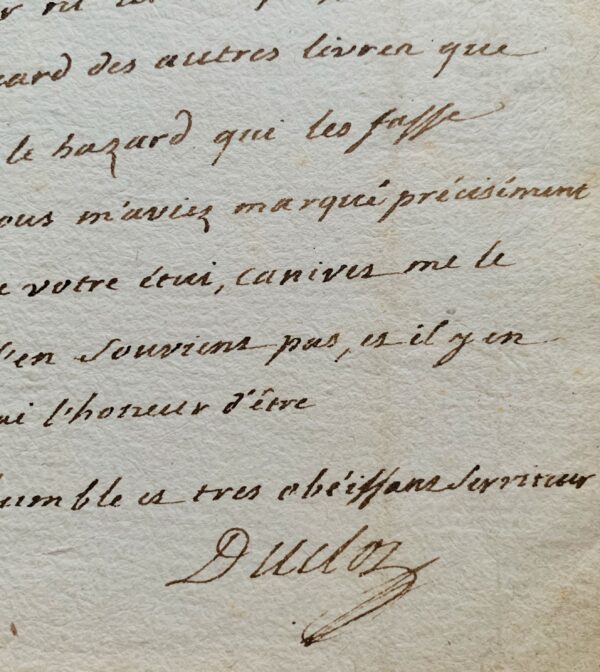 des autres livres que
le hazard qui les fasse
ous m'aviez marqué précisément
votre étui, canivet me le
'en souvient pas, et il y en
l'honeur d'être
umble et tres obéissant serviteur
Duclos